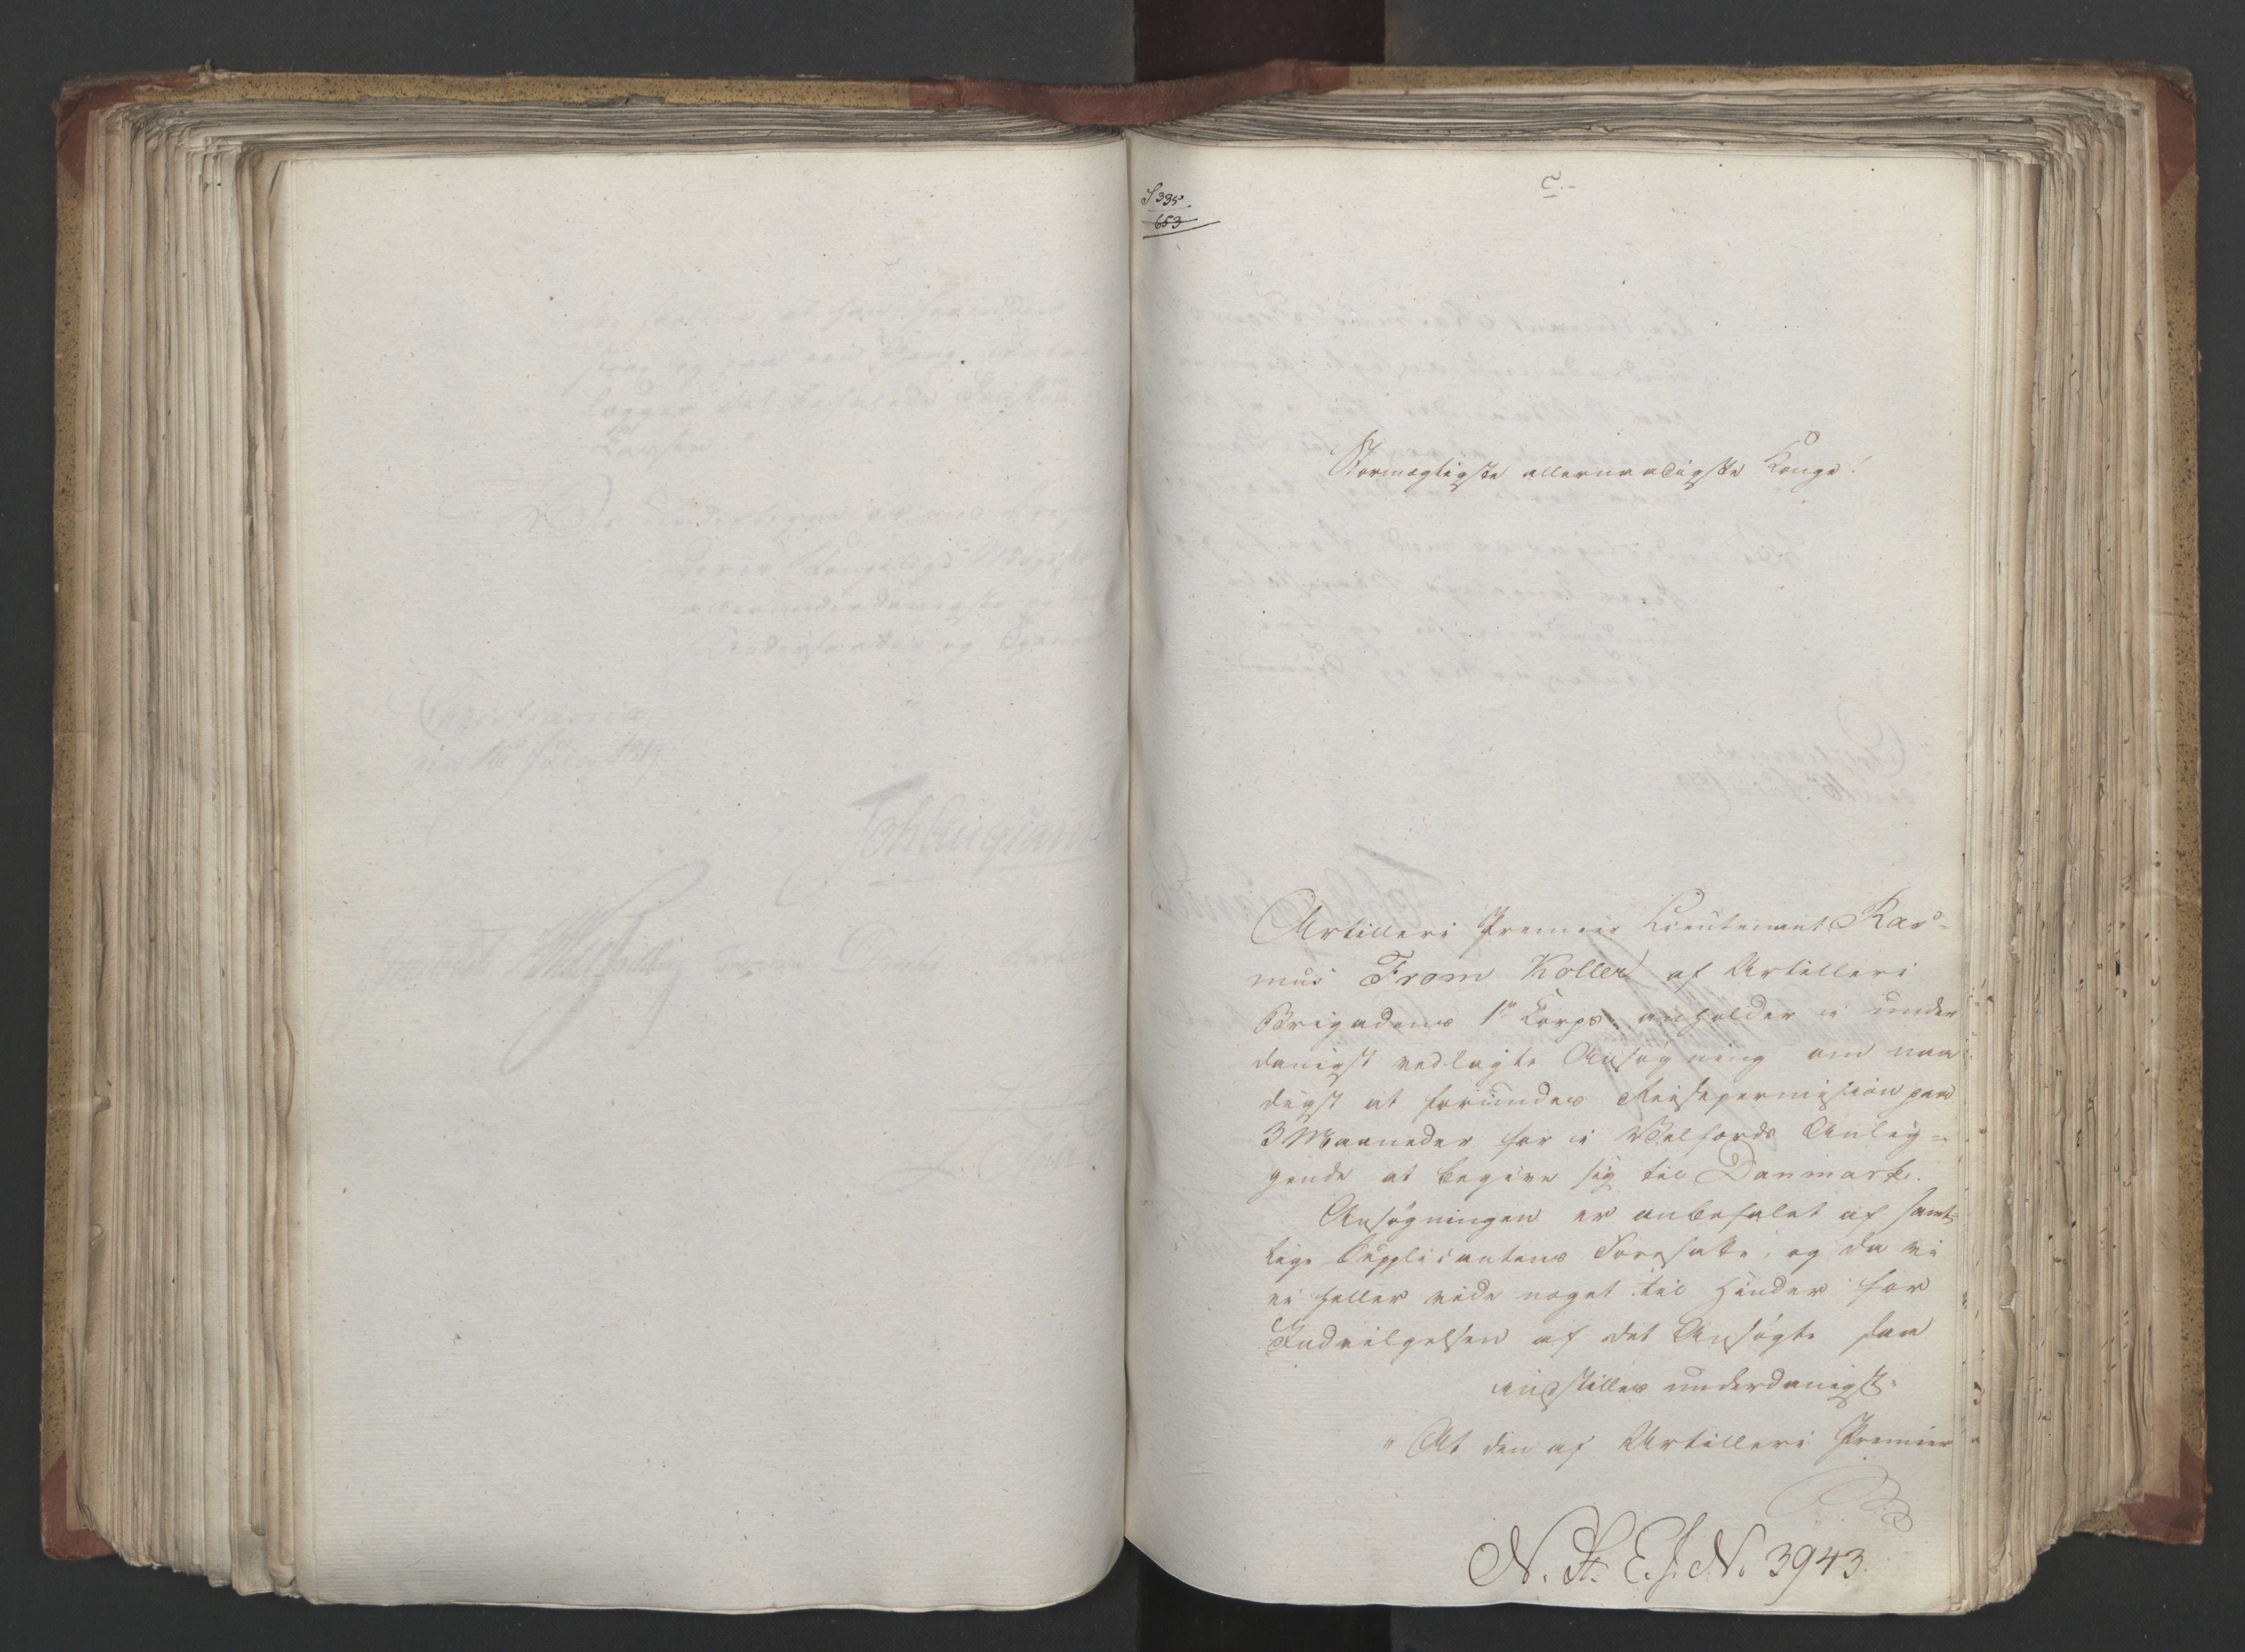 S 395.
653
C.-
Stormægtigste allernaadigste Konge!
Artilleri Premier Lieutenant Ras-
mus From Koller af Artilleri
Brigadens 1e Corps anholder i under
danigst vedlagte Ansøgning om naa
digst at forundes Reisepermission paa
3 Maaneder for i Velfærds Anlig=
gende at begive sig til Danmark.
Ansøgningen er anbefalet af samt
lige Supplicantens Foresatte, og da vi
ei heller vide noget til Hinder for
Indvilgelsen af det Ansøgte saa
indstilles underdanigst:
"At den af Artilleri Premier
N. A. E. J. N. 3943.